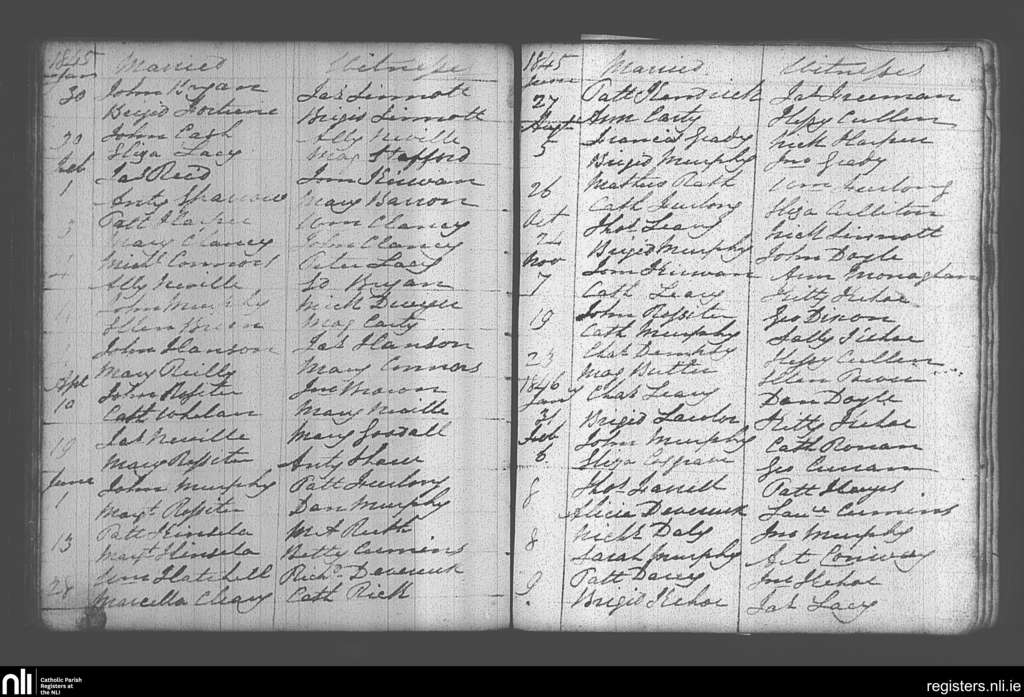 1845 Married Witnesses
Jan
30 John Bryan Jas Sinnott
Brigid Brigid Sinnott
30 John Cash Ally Neville
Eliza Lacy Mag Stafford
Feb
1 Jas Reed Tom Kirwan
Anty Mary Barron
3 Patt Harper Wm Clancy
Mary Clancy John Clancy
4 Michl Connors Peter Lacy
Ally Neville Ed Bryan
John Murphy Mich Dwyer
Ellen Mag Carty
John Hanson Jas Hanson
Mary Reilly Mary Connors
Apl
10 John Rossiter Jno Brown
Cath Whelan Mary Neville
19 Jas Neville Mary Goodall
Mary Rossiter Anty Shaw
June
1 John Murphy Patt Furlong
Margt Rossiter Dan Murphy
13 Patt Kinsela M A Ruth
Margt Kinsela Betty Cumins
28 Wm Hatchell Richd Devereux
Marcella Cleary Cath Rick
1845 Married Witnesses
June
27 Patt Kendrick Jas Freeman
Ann Carty Hessy Cullen
Augt
5 Francis Grady Nick Harper
Brigid Murphy Jno Grady
26 Mathew Rath Wm Furlong
Cath Furlong Eliza Culliton
Oct
24 Thos Leary Nick Sinnott
Brigid Murphy John Doyle
Nov
7 Tom Kirwan Ann Monaghan
Cath Leary Kitty Kehoe
19 John Rossiter Geo Dixon
Cath Murphy Sally Kehoe
23 Chas Dempsy Hessy Cullen
Mag Butler Ellen Power
1846
Jany
31 Chas Leary Dan Doyle
Brigid Lawlor Kitty Kehoe
Feb
6 John Murphy Cath Ronan
Eliza Cosgrave Geo Curran
8 Thos Patt Hayes
Alicia Devereux Lawce Cumins
8 Nichs Daly Jno Murphy
Sarah Murphy Art Conway
9 Patt Darcy Jno Kehoe
Brigid Kehoe Jas Lacy
nli Catholic Parish
Registers at
the NLI
registers.nli.ie